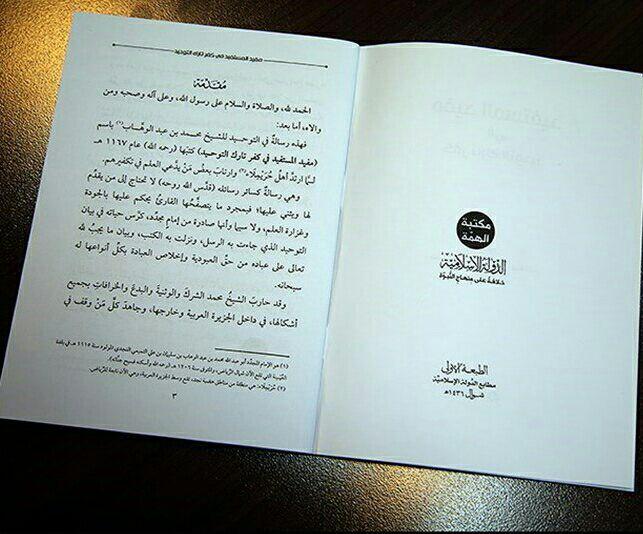 مكتبة
الهمة
الدولة الإسلامية
خلافة على منهاج النبوة
الطبعة الأولى
مطابع الدولة الإسلامية
شوال ١٤٣٦هـ
مفيد المستفيد في كفر تارك التوحيد
مُقَدِّمَة
الحمد لله، والصلاة والسلام على رسول الله، وعلى آله وصحبه ومن
والاه، أما بعد:
فهذه رسالةٌ في التوحيد للشيخ محمد بن عبد الوهاب(١) باسم
(مفيد المستفيد في كفر تارك التوحيد) كتبها (رحمه الله) عام ١١٦٧ هـ
لـمَّا ارتدَّ أهلُ حُرَيْمِلاء(٢) وارتابَ بعضُ مَنْ يدَّعي العلم في تكفيرهم.
وهي رسالةٌ كسائر رسائله (قدَّس الله روحه) لا تحتاج إلى من يقدِّم
لها ويثني عليها؛ فبمجرد ما يتصفَّحُها القارئُ يحكم عليها بالجودة
وغزارة العلم، ولا سيما وأنها صادرة من إمامٍ مجدِّد، كرَّس حياته في بيان
التوحيد الذي جاءت به الرسل، ونزلت به الكتب، وبيان ما يجبُ لله
تعالى على عباده من حقِّ العبودية وإخلاص العبادة بكلِّ أنواعها له
سبحانه.
وقد حاربَ الشيخُ محمد الشركَ والوثنيةَ والبدعَ والخرافاتِ بجميع
أشكالها، في داخل الجزيرة العربية وخارجها، وجاهدَ كلَّ مَنْ وقف في
(١) هو الإمام المجدِّد أبو عبد الله محمد بن عبد الوهاب بن سليمان بن علي التميمي النجدي المولود سنة ١١١٥ هـ في بلدة
العُيَيْنة التي تقع الآن شمال الرياض، والمتوفى سنة ١٢٠٦ هـ (رحمه الله وأسكنه فسيح جنَّاته).
(٢) حُرَيْمِلاء: هي منطقة من مناطق هضبة نجد، تقع وسط الجزيرة العربية، وهي الآن تابعة للرياض.
٣